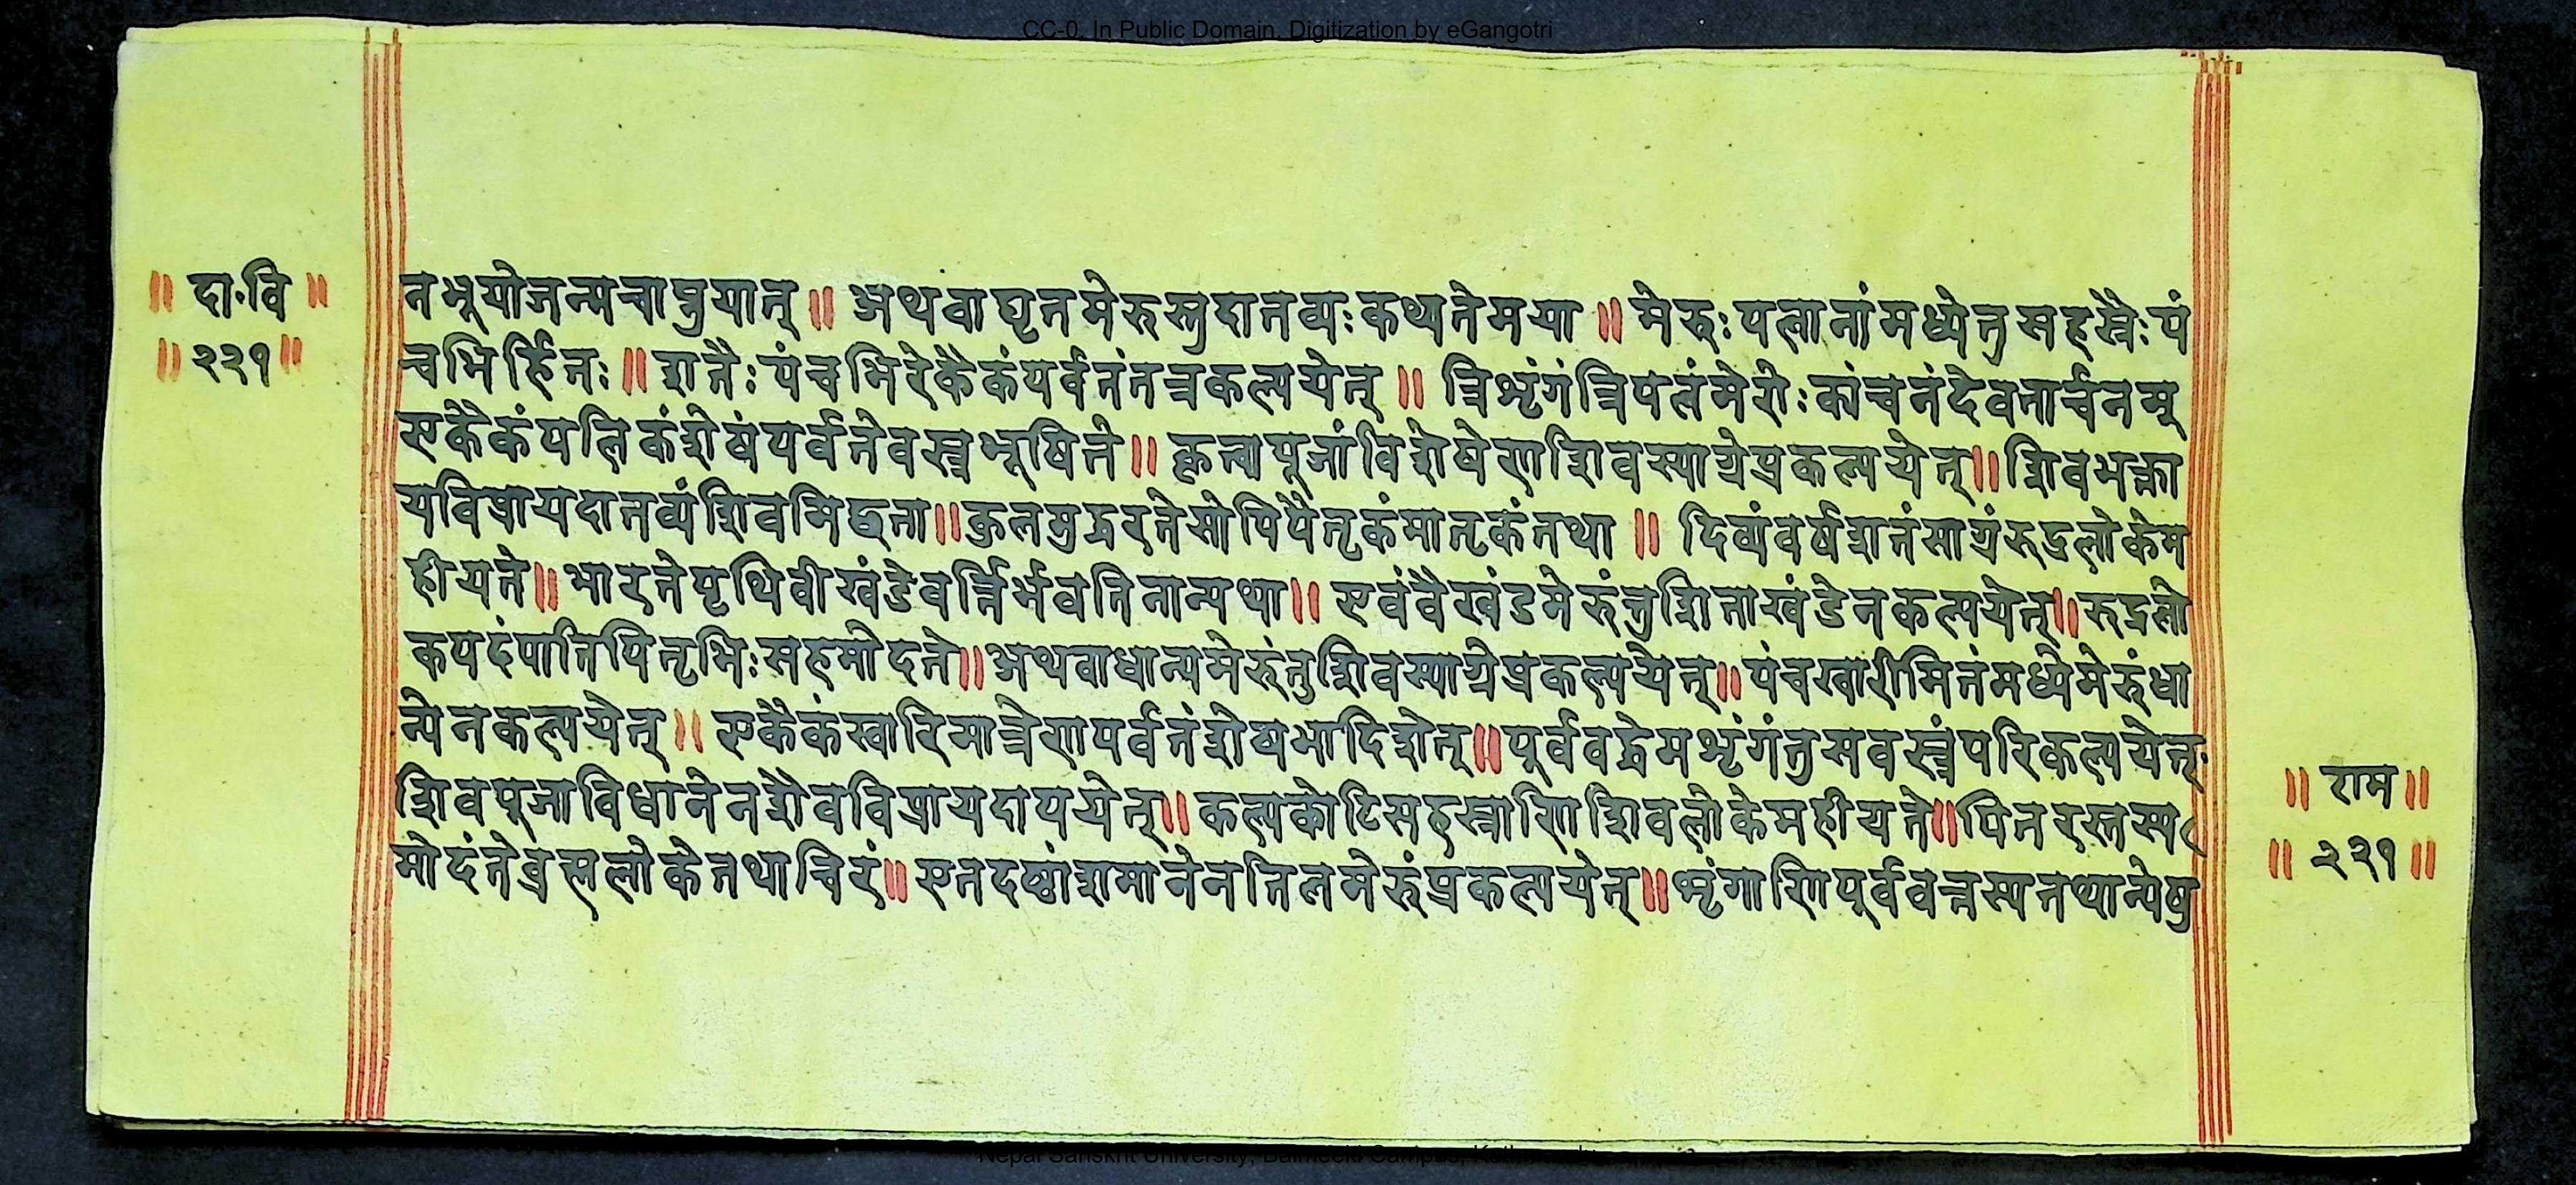 CC-0. In Public Domain. Digitization by eGangotri
॥ दा॰वि ॥
॥ २२१ ॥
नभूयोजन्मचाप्नुयात् ॥ अथवाघृतमेरुस्तुदातव्यःकथ्यतेमया ॥ मेरुःपलानांमध्येतुसहस्रैःपं
चभिर्हितः ॥ शतैःपंचभिरेकैकंपर्वतंतत्रकल्पयेत् ॥ त्रिशृंगंत्रिपलंमेरोःकांचनंदेवतार्चनम्
एकैकंपलिकंशेषंपर्वतेवस्त्रभूषिते ॥ कृत्वापूजांविशेषेणशिवस्याग्रेप्रकल्पयेत् ॥ शिवभक्ता
यविप्रायदातव्यंशिवमिछता ॥ कुलमुद्धरतेसोपिपैतृकंमातृकंतथा ॥ दिव्यंवर्षशतंसाग्रंरुद्रलोकेम
हीयते ॥ भारतेपृथिवीखंडेवर्त्तिर्भवतिनान्यथा ॥ एवंवैखंडमेरुंतुशिताखंडेनकल्पयेत् ॥ रुद्रलो
कपदंपातिपितृभिःसहमोदते ॥ अथवाधान्यमेरुंतुशिवस्याग्रेप्रकल्पयेत् ॥ पंचखारीमितंमध्येमेरुंधा
न्येनकल्पयेत् ॥ एकैकंखारिमात्रेणपर्वतंशेष्यभादिशेत् ॥ पूर्ववद्धेमशृंगंतुसवस्त्रंपरिकल्पयेत्
शिवपूजाविधानेनशैवविप्रायदापयेत् ॥ कल्पकोटिसहस्राणिशिवलोकेमहीयते ॥ पितरस्तस्य
मोदंतेब्रह्मलोकेतथाचिरं ॥ एतदष्टांशमानेनतिलमेरुंप्रकल्पयेत् ॥ शृंगाणिपूर्ववत्तस्यतथान्येषु
॥ राम ॥
॥ २२१ ॥
Nepal Sanskrit University, Balmeeki Campus,